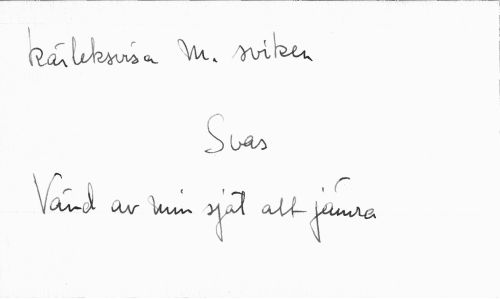 kärleksvisa M. sviken
Svas
Vänd av min själ att jämra